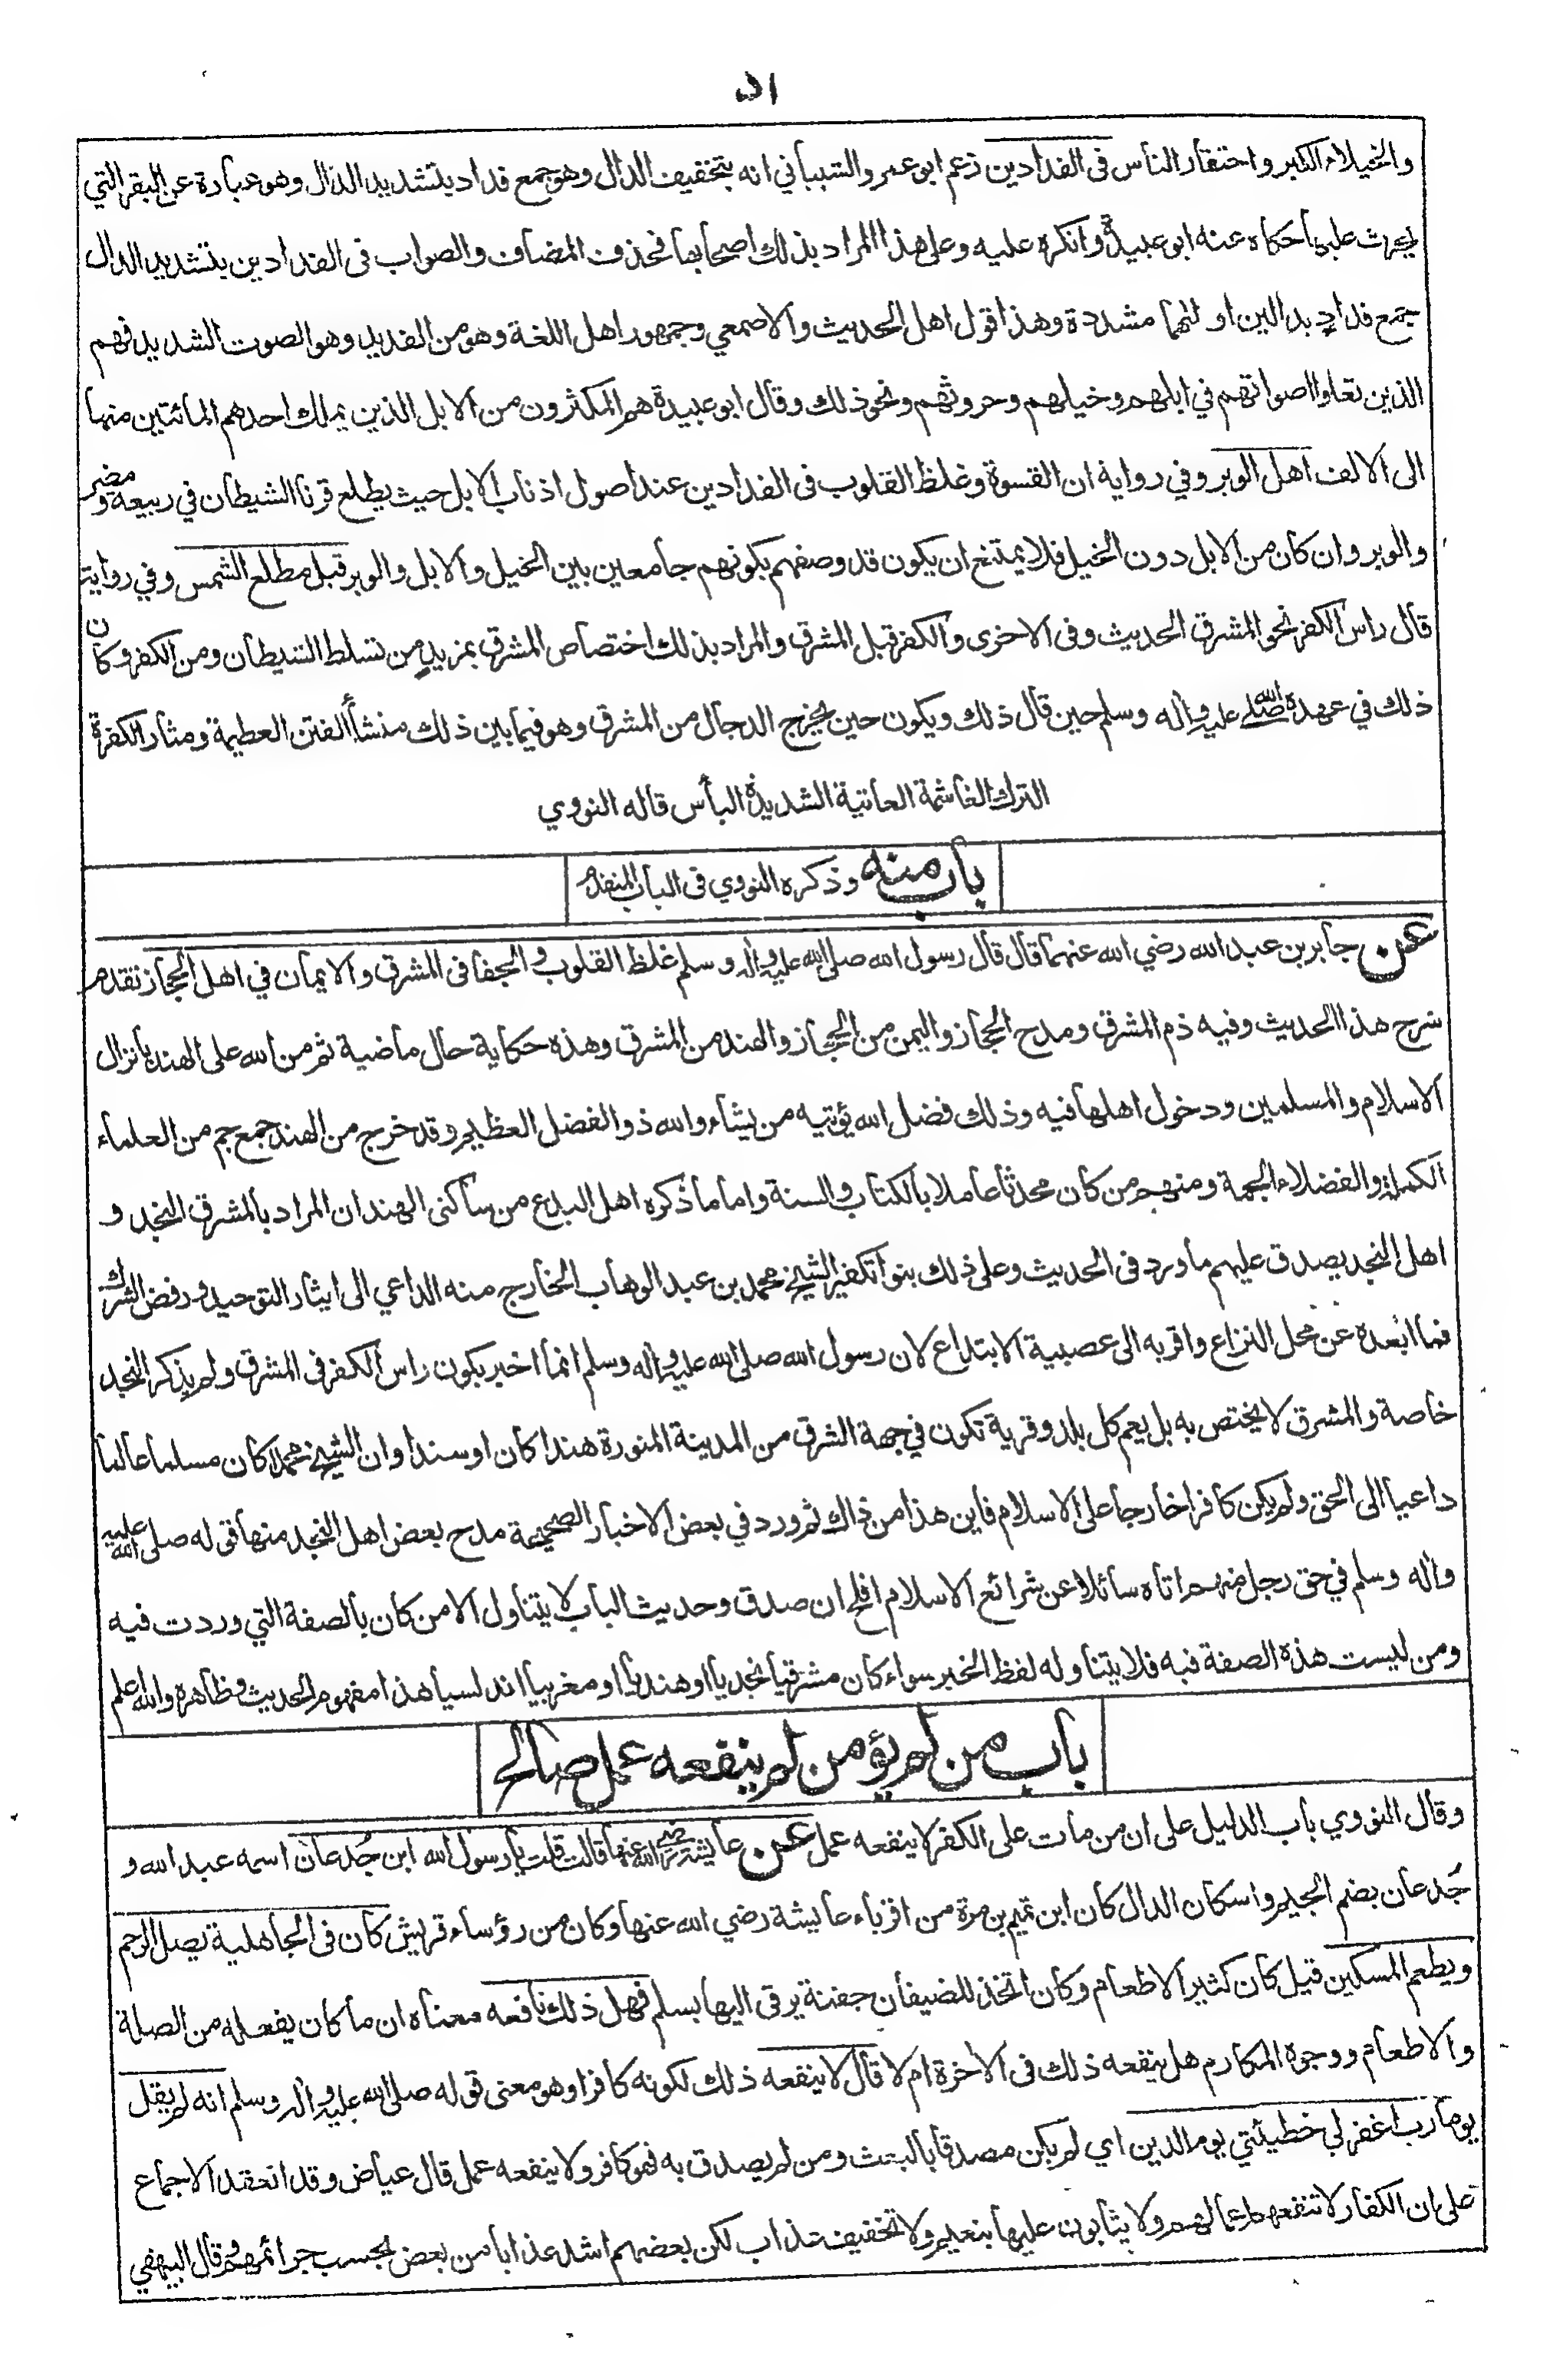 ٥١
والخيلاء الكبر واحتقار الناس فى الفدادين زعم ابو عمرو الشيباني انه بتخفيف الدال وهو جمع فداد بتشديد الدال وهو عبارة عن البقر التي
يحرث عليها حكاه عنه ابو عبيدة وانكره عليه وعلى هذا المراد بذلك اصحابها فحذف المضاف والصواب فى الفدادين بتشديد الدال
جمع فداد بدالين اولٰهما مشددة وهذا قول اهل الحديث والاصمعي وجمهور اهل اللغة وهو من الفديد وهو الصوت الشديد فهم
الذين تعلوا اصواتهم في ابلهم وخيلهم وحروثهم ونحو ذلك وقال ابو عبيدة هم المكثرون من الابل الذين يملك احدهم المائتين منها
الى الالف اهل الوبر وفي رواية ان القسوة وغلظ القلوب فى الفدادين عند اصول اذناب الابل حيث يطلع قرنا الشيطان في ربيعة و مضر
والوبر وان كان من الابل دون الخيل فلا يمتنع ان يكون قد وصفهم بكونهم جامعين بين الخيل والابل والوبر قبل مطلع الشمس وفي رواية
قال راس الكفر نحو المشرق الحديث وفى الاخرى والكفر قبل المشرق والمراد بذلك اختصاص المشرق بمزيد من تسلط الشيطان ومن الكفر وكان
ذلك في عهده صلى الله عليه واله وسلم حين قال ذلك ويكون حين يخرج الدجال من المشرق وهو فيما بين ذلك منشأ الفتن العظيمة ومثار الكفرة
الترك الغاشمة العاتية الشديدة البأس قاله النووي
باب منه وذكره النووي فى الباب المتقدم
عن جابر بن عبد الله رضي الله عنهما قال قال رسول الله صلى الله عليه واله وسلم غلظ القلوب والجفا فى المشرق والايمان في اهل الحجاز تقدم
شرح هذا الحديث وفيه ذم المشرق ومدح الحجاز واليمن من الحجاز والهند من المشرق وهذه حكاية حال ماضية ثم من الله على الهند بانزال
الاسلام والمسلمين ودخول اهلها فيه وذلك فضل الله يؤتيه من يشاء والله ذو الفضل العظيم وقد خرج من الهند جمع جم من العلماء
الكملة والفضلاء الجمة ومنهم من كان محدثا عاملا بالكتاب والسنة واما ما ذكره اهل البدع من ساكنى الهند ان المراد بالمشرق النجد و
اهل النجد يصدق عليهم ما ورد فى الحديث وعلى ذلك بنوا تكفير الشيخ محمد بن عبد الوهاب الخارج منه الداعي الى ايثار التوحيد ورفض الشرك
فما ابعده عن محل النزاع واقربه الى عصبية الابتداع لان رسول الله صلى الله عليه واله وسلم انما اخبر بكون راس الكفر فى المشرق ولم يذكر النجد
خاصة والمشرق لا يختص به بل يعم كل بلد وقرية تكون في جهة الشرق من المدينة المنورة هندا كان او سندا وان الشيخ محمدا كان مسلما عالما
داعيا الى الحق ولم يكن كافرا خارجا على الاسلام فاين هذا من ذاك ثم ورد في بعض الاخبار الصحيحة مدح بعض اهل النجد منها قوله صلى الله عليه
واله وسلم في حق رجل منهم اتاه سائلا عن شرائع الاسلام افلح ان صدق وحديث الباب لا يتناول الا من كان بالصفة التي وردت فيه
ومن ليست هذه الصفة فيه فلا يتناوله لفظ الخبر سواء كان مشرقيا نجديا او هنديا او مغربيا اندلسيا هذا مفهوم الحديث وظاهره والله اعلم
باب من لم يؤمن لم ينفعه عمل صالح
وقال النووي باب الدليل على ان من مات على الكفر لا ينفعه عمل عن عايشة رضي الله عنها قالت قلت يا رسول الله ابن جُدعان اسمه عبد الله و
جُدعان بضم الجيم واسكان الدال كان ابن تميم بن مرة من اقرباء عايشة رضي الله عنها وكان من رؤساء قريش كان فى الجاهلية يصل الرحم
ويطعم المسكين قيل كان كثير الاطعام وكان اتخذ للضيفان جفنة يرقى اليها بسلم فهل ذلك نافعه معناه ان ما كان يفعله من الصلة
والاطعام ووجوه المكارم هل ينفعه ذلك فى الاخرة ام لا قال لا ينفعه ذلك لكونه كافرا وهو معنى قوله صلى الله عليه واله وسلم انه لم يقل
يوما رب اغفر لي خطيئتي يوم الدين اي لم يكن مصدقا بالبعث ومن لم يصدق به فهو كافر ولا ينفعه عمل قال عياض وقد انعقد الاجماع
على ان الكفار لا تنفعهم اعمالهم ولا يثابون عليها بنعيم ولا تخفيف عذاب لكن بعضهم اشد عذابا من بعض بحسب جرائمهم وقال البيهقي